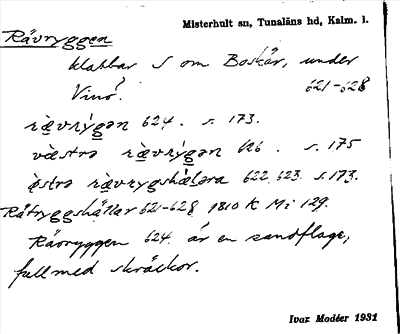 Misterhult sn, Tunaläns hd, Kalm. l.
Rävryggen
klabbar S om Boskär, under
Vinö. 621-628
rævrýgən 624. s. 173.
væstrə rævrýgən 626. s. 175
östrə rævrygshælara 622, 623. s. 173.
Räfryggshällar 621-628 1810 K Mi 129.
Rävryggen 624 är en sandflage,
full med skräckor.
Ivar Modéer 1931